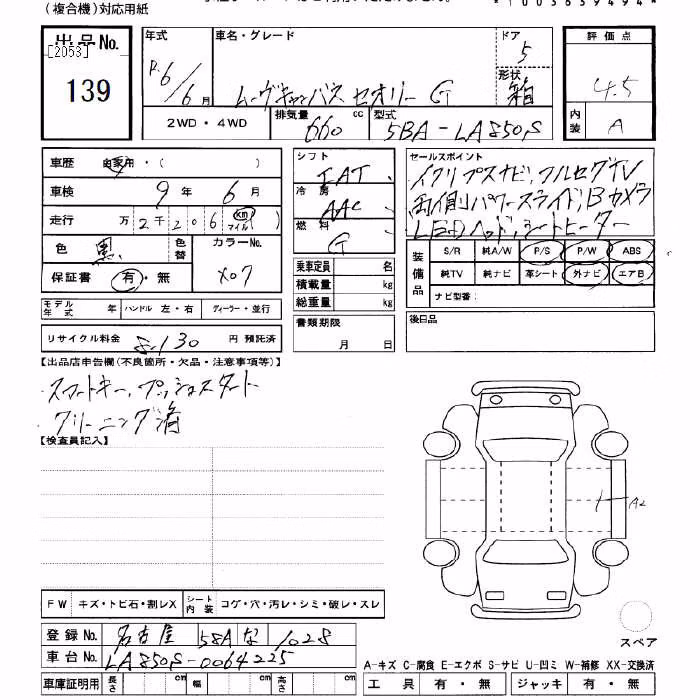 (複合機)対応用紙
出品No.
[2053]
139
年式
R6/6月
車名・グレード
ムーヴキャンバス セオリー G
ドア
5
形状
箱
評価点
4.5
内装
A
2WD・4WD
排気量
660 cc
型式
5BA-LA850S
車歴 自家用・( )
車検 9年 6月
走行 万2千206 km マイル
色 黒
色替
カラーNo.
X07
保証書 有・無
モデル年式 年 ハンドル 左・右 ディーラー・並行
リサイクル料金 8,130 円 預託済
シフト
IAT
冷房
AAC
燃料
G
乗車定員 名
積載量 kg
総重量 kg
書類期限
月 日
セールスポイント
イクリプスナビ、フルセグTV
両側パワースライド、Bカメラ
LEDヘッド、シートヒーター
装備品
S/R 純A/W P/S P/W ABS
純TV 純ナビ 革シート 外ナビ エアB
ナビ型番:
後日品
【出品店申告欄(不良箇所・欠品・注意事項等)】
・スマートキー、プッシュスタート
・クリーニング済
【検査員記入】
A2
FW キズ・トビ石・割レX シート内装 コゲ・穴・汚レ・シミ・破レ・スレ
登録No. 名古屋 581 な 1028
車台No. LA850S-0064225
車庫証明用 長さ cm 幅 cm 高さ cm
スペア
A-キズ C-腐食 E-エクボ S-サビ U-凹ミ W-補修 XX-交換済
工具 有・無 ジャッキ 有・無